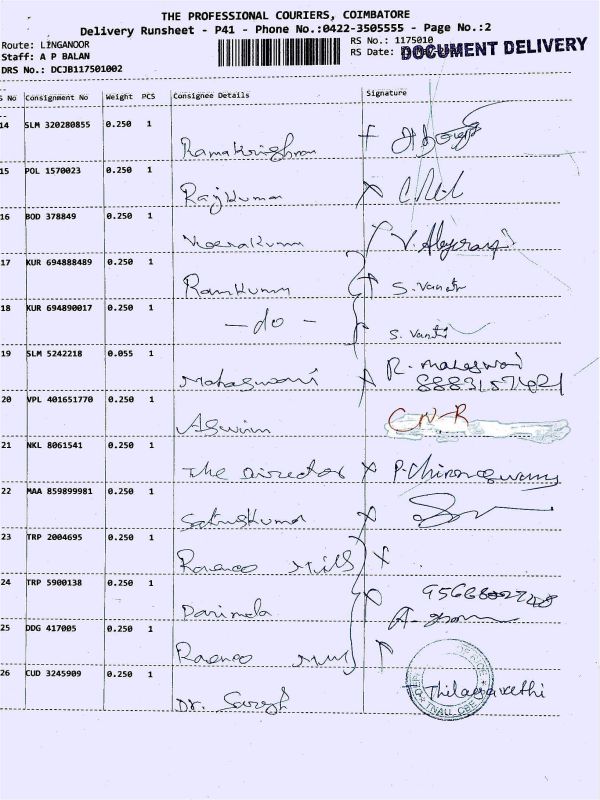 THE PROFESSIONAL COURIERS, COIMBATORE
Delivery Runsheet - P41 - Phone No.:0422-3505555 - Page No.:2
Route: LINGANOOR RS No.: 1175010
Staff: A P BALAN RS Date: DOCUMENT DELIVERY
DRS No.: DCJB117501002
S No Consignment No Weight PCS Consignee Details Signature
14 SLM 320280855 0.250 1
Ramakrishnan
15 POL 1570023 0.250 1
Rajkumar
16 BOD 378849 0.250 1
Veerakumar
17 KUR 694888489 0.250 1
Ramkumar S. Vanathi
18 KUR 694890017 0.250 1
-do- S. Vanthi
19 SLM 5242218 0.055 1
Maheswari R. maheswari
20 VPL 401651770 0.250 1
Aswin
21 NKL 8061541 0.250 1
The Director
22 MAA 859899981 0.250 1
Sathiskumar
23 TRP 2004695 0.250 1
Mills
24 TRP 5900138 0.250 1
Parimala
25 DDG 417005 0.250 1
26 CUD 3245909 0.250 1
Dr. Thilagavathi